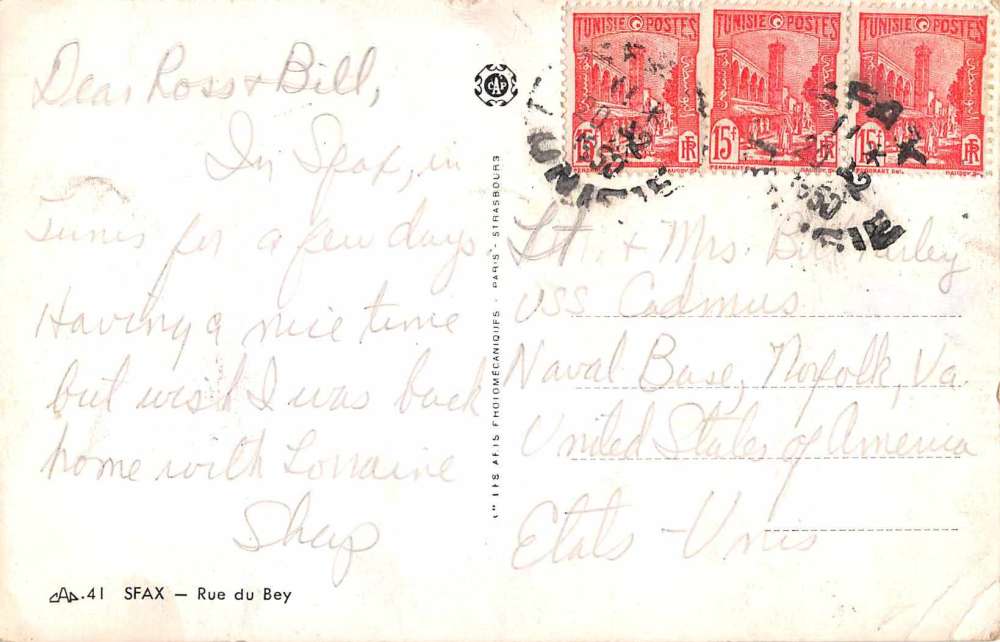 Dear Ross & Bill,
In Sfax, in
Tunis for a few days.
Having a nice time
but wish I was back
home with Lorraine
Shap
CAP.41 SFAX — Rue du Bey
CAP
PARIS - STRASBOURG
TUNISIE POSTES
15f
RF
TUNISIE POSTES
15f
RF
TUNISIE POSTES
15f
RF
Lt. & Mrs. Bill
USS Cadmus
Naval Base, Norfolk, Va.
United States of America
Etats-Unis